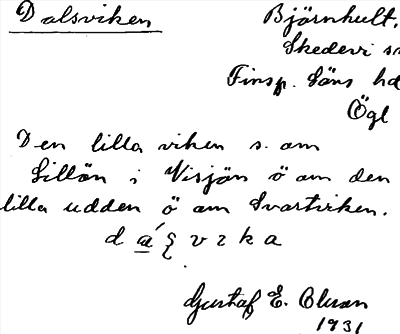 Dalsviken
Björnhult,
Skedevi s
Finsp. läns hd
Ögl
Den lilla viken s. om
Lillön i Visjön ö om den
lilla udden ö om Svartviken.
Gustaf E.
1931